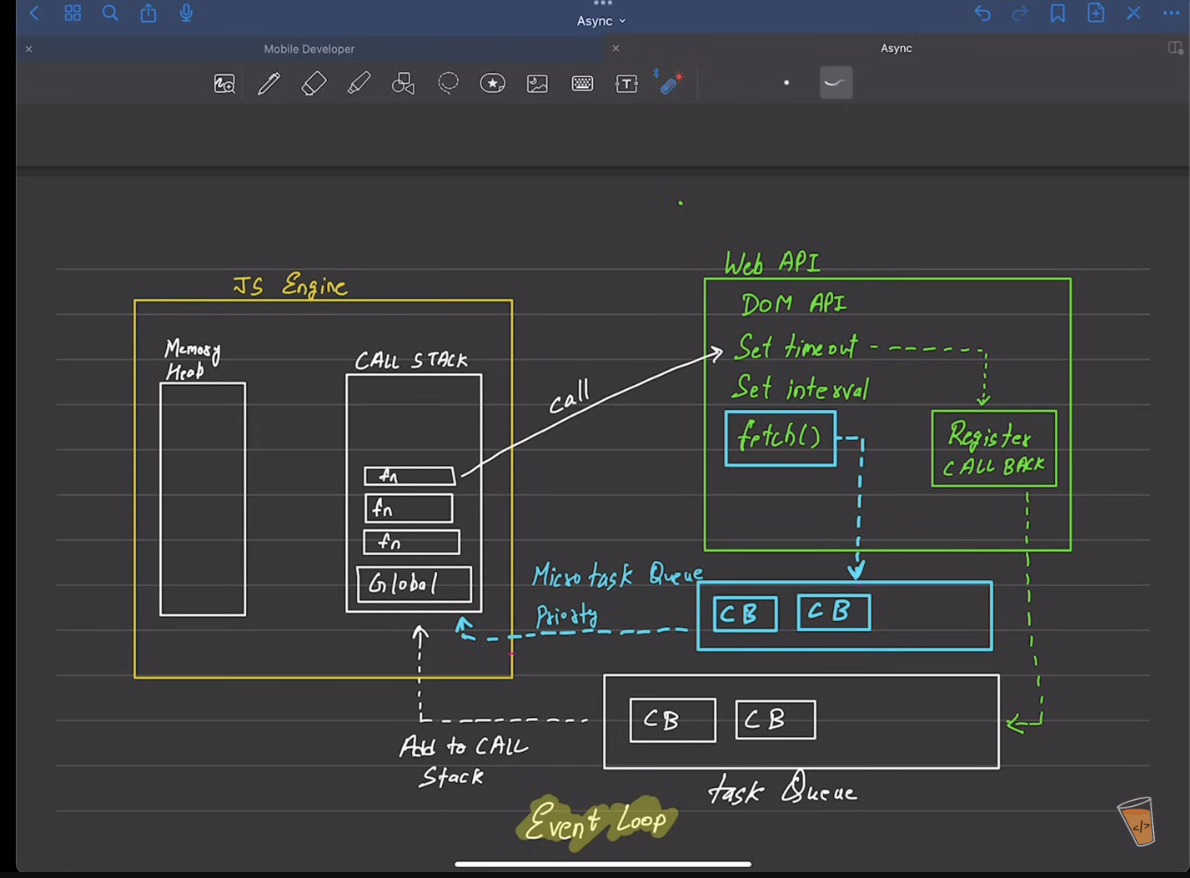 Async
Mobile Developer
Async
T
JS Engine
Memory
Heap
CALL STACK
fn
fn
fn
Global
call
Web API
DOM API
Set timeout
Set interval
fetch()
Register
CALL BACK
Micro task Queue
Priority
CB CB
CB CB
Add to CALL
Stack
task Queue
Event Loop
</>